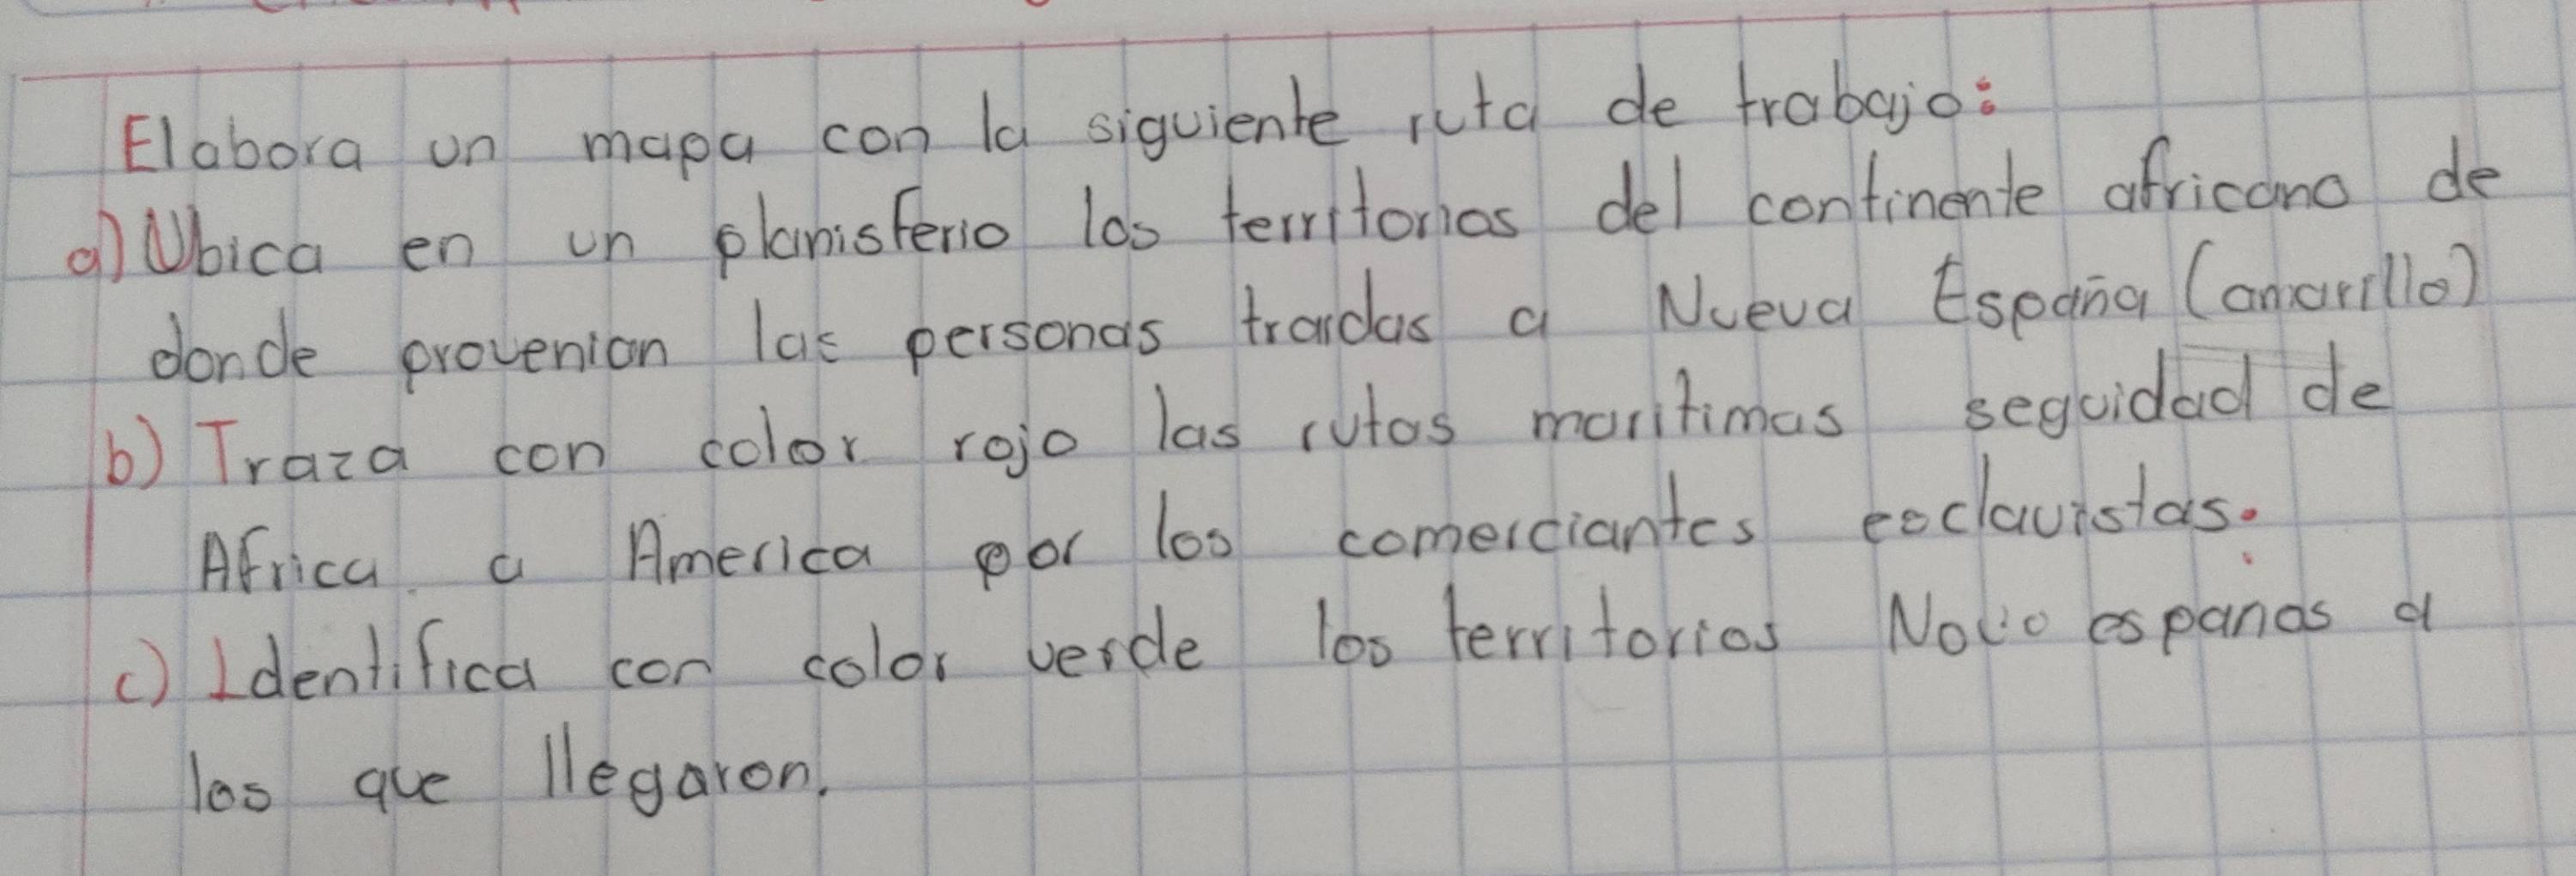 Elabora un mapa con la siguiente ruta de trabajo:
a) Ubica en un planisferio los territorios del continente africano de
donde provenian las personas traidas a Nueva España (amarillo)
b) Traza con color rojo las rutas maritimas seguidad de
Africa a America por los comerciantes esclavistas.
c) Identifica con color verde los territorios Novo espanos a
los que llegaron.